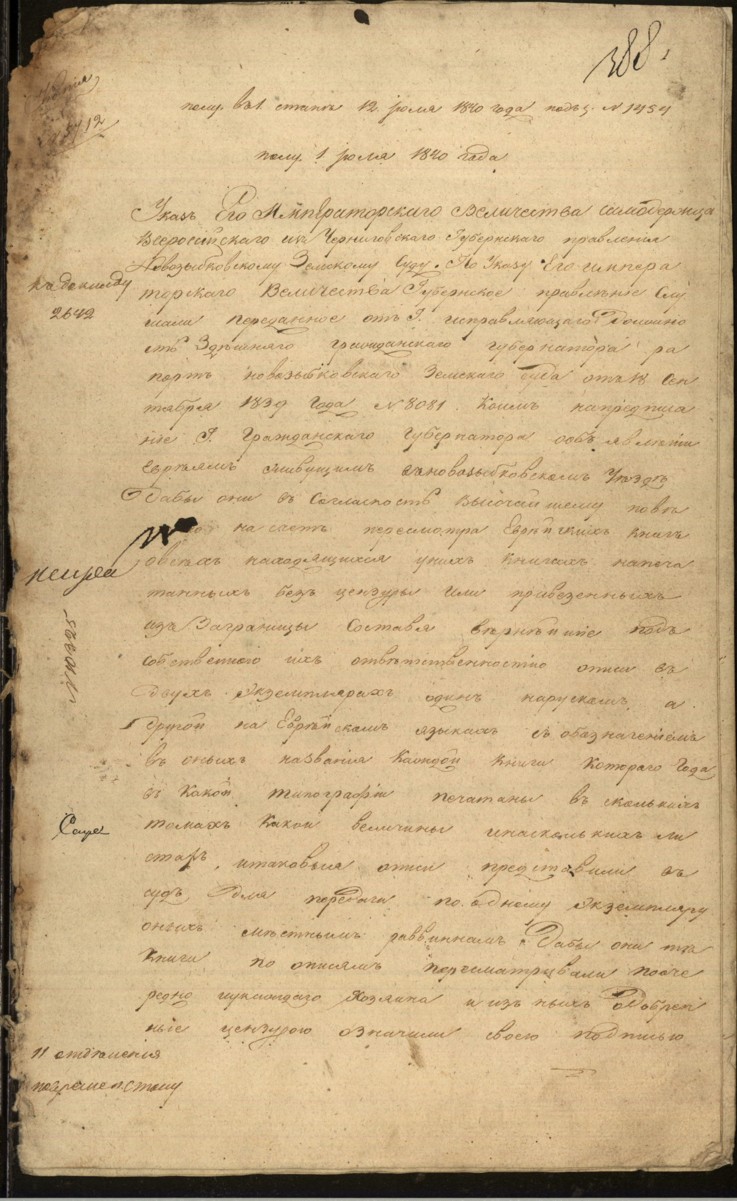 388
полу. въ 1 станъ 12 июля 1840 года подъ № 1454
полу. 1 июля 1840 года
Указъ Его Императорского Величества самодержца
Всеросийского изъ Черниговского Губернского правления
Новозыбковскому Земскому Суду. По Указу Его импера
торскаго Величества Губернское правление Слу
шали переданное отъ Г. исправляющаго Должно
сть Здешняго гражданскаго губернатора ра
портъ новозыбковскаго Земскаго суда отъ 18 Сен
тября 1839 Года № 8081. Коимъ на предписа
ние Г. Гражданскаго Губернатора объявлении
Евреямъ живущимъ въ новозыбковскомъ Уезде
Дабы они въ Согласность Высочайшему пове
на счетъ пересмотра Еврейскихъ книгъ
о всехъ находящихся у нихъ книгахъ напеча
танныхъ безъ цензуры или привезенныхъ
изъ Заграницы Составя вернейшие подъ
собственною ихъ ответственностию описи въ
Двухъ экземплярахъ одинъ на рускомъ а
другой на Еврейскомъ языкахъ съ обозначениемъ
въ оныхъ названия Каждой Книги Котораго Года
въ Какой типографии печатаны въ сколькихъ
томахъ Какой величины и на сколькихъ ли
стахъ, и таковыя описи представили въ
судъ Для передачи по одному экземпляру
оныхъ местнымъ раввинамъ Дабы они те
Книги по описямъ пересматривали пооче
редно у каждаго Хозяина и изъ ныхъ Одобрен
ные цензурою означили своею подписью
къ докладу
2642
№ 10325
11 отделения